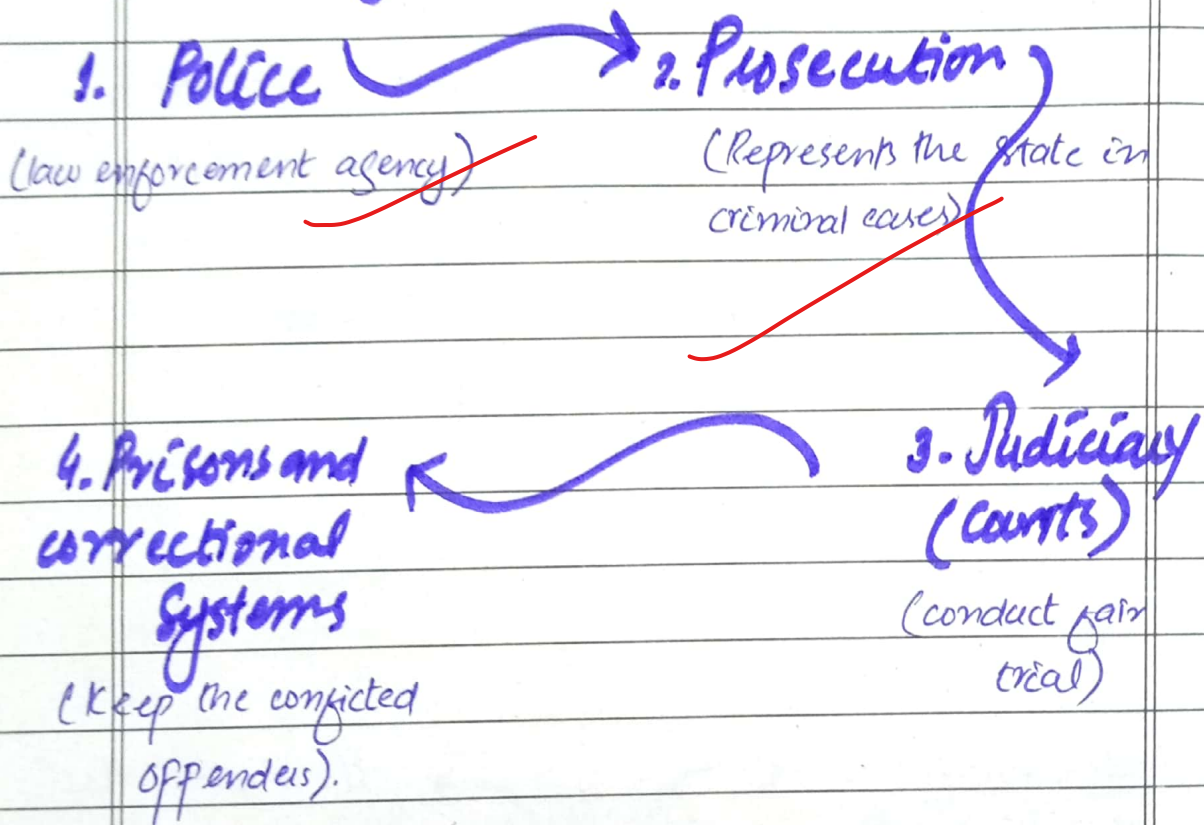 1. Police
(law enforcement agency)
2. Prosecution
(Represents the state in
criminal cases)
3. Judiciary
(Courts)
(conduct fair
trial)
4. Prisons and
correctional
Systems
(Keep the conficted
offenders).